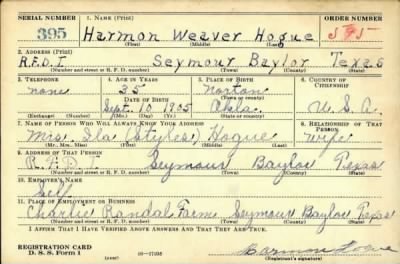 SERIAL NUMBER 1. NAME (Print) ORDER NUMBER
395 Harmon Weaver Hogue
(First) (Middle) (Last)
2. ADDRESS (Print)
R.F.D. 1 Seymour Baylor Texas
(Number and street or R. F. D. number) (Town) (County) (State)
3. TELEPHONE 4. AGE IN YEARS 5. PLACE OF BIRTH 6. COUNTRY OF CITIZENSHIP
none 35 Norton
DATE OF BIRTH (Town or county)
Sept. 10 1905 Okla. U. S. A.
(Exchange) (Number) (Mo.) (Day) (Yr.) (State or country)
7. NAME OF PERSON WHO WILL ALWAYS KNOW YOUR ADDRESS 8. RELATIONSHIP OF THAT PERSON
Mrs. Ila (Styles) Hogue Wife
(Mr., Mrs., Miss) (First) (Middle) (Last)
9. ADDRESS OF THAT PERSON
R.F.D. 1 Seymour Baylor Texas
(Number and street or R. F. D. number) (Town) (County) (State)
10. EMPLOYER'S NAME
Self
11. PLACE OF EMPLOYMENT OR BUSINESS
Charlie Randal Farm Seymour Baylor Texas
(Number and street or R. F. D. number) (Town) (County) (State)
I AFFIRM THAT I HAVE VERIFIED ABOVE ANSWERS AND THAT THEY ARE TRUE.
REGISTRATION CARD
D. S. S. Form 1 16—17105 (Registrant's signature)